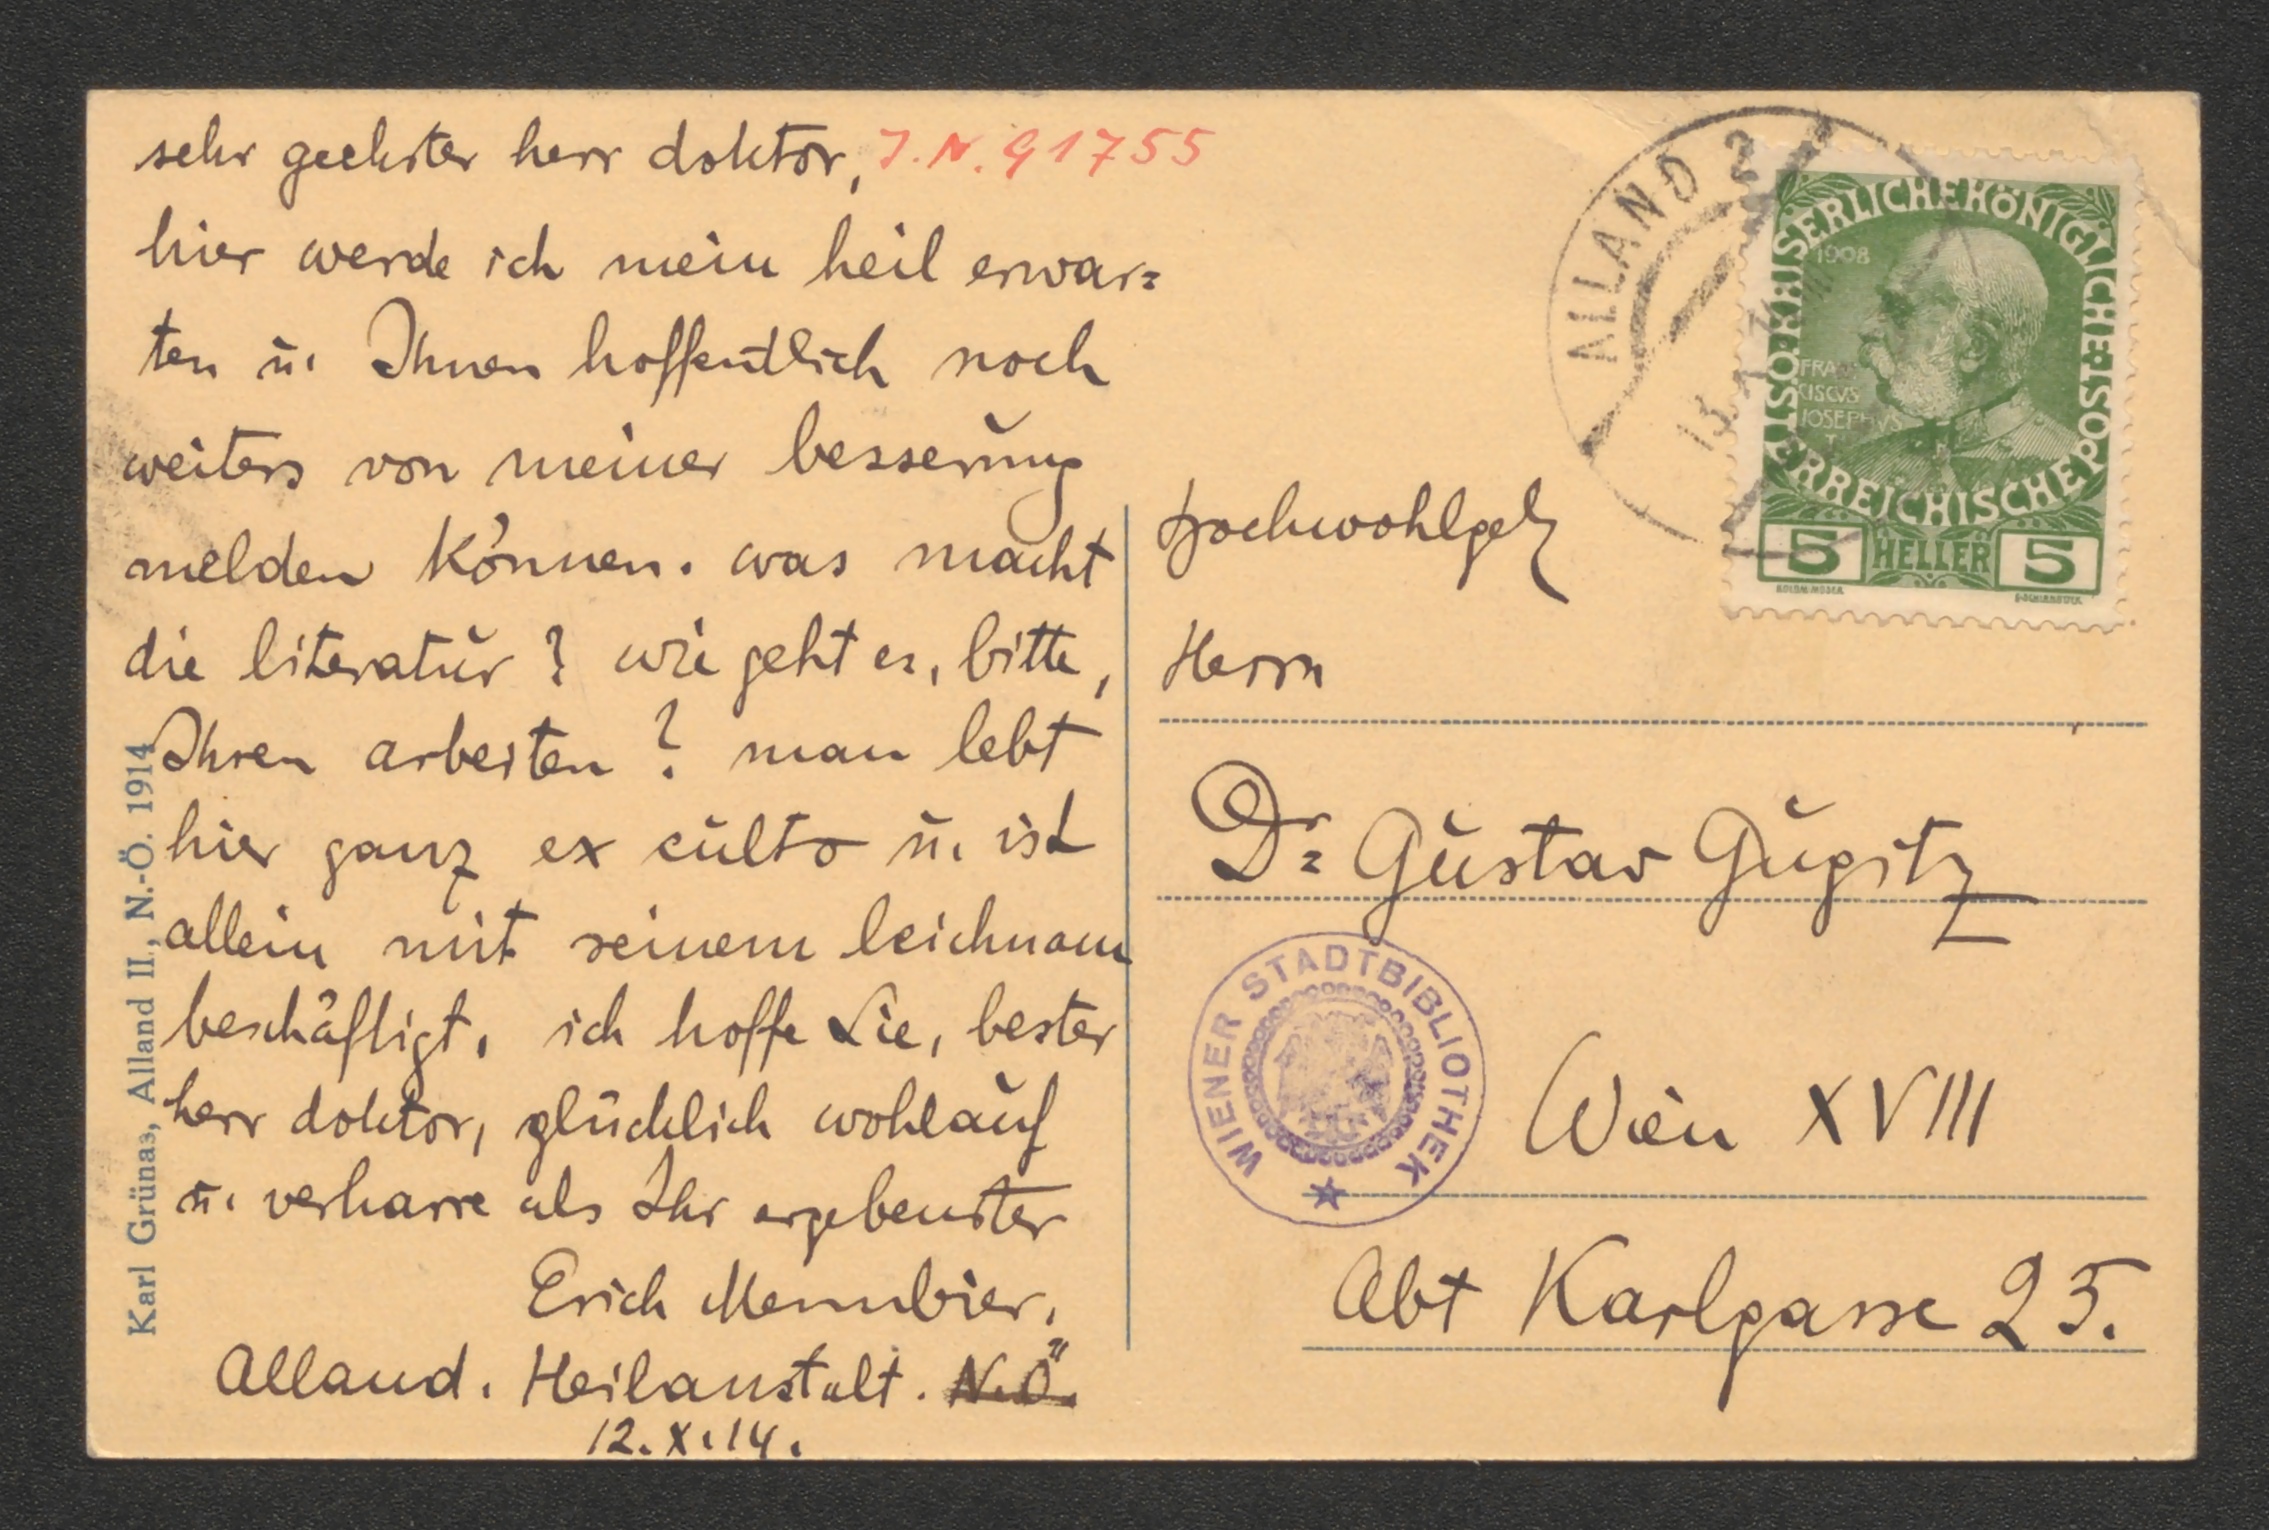 sehr geehrter herr doktor, J.N. 91755
hier werde ich mein heil erwar=
ten u. Ihnen hoffentlich noch
weiters von meiner besserung
melden können. was macht
die literatur? wie geht es, bitte,
Ihren arbeiten? man lebt
hier ganz ex culto u. ist
allein mit seinem leichnam
beschäftigt. ich hoffe Sie, bester
herr doktor, glücklich wohlauf
u. verharre als Ihr ergebenster
Erich Mennbier.
Alland. Heilanstalt. N.Ö.
12.X.14.
Karl Grünas, Alland II., N.-Ö. 1914
ALLAND 2
13.
KAISERLICHE KÖNIGLICHE ÖSTERREICHISCHE POST
1908
FRAN
CISCVS
IOSEPHVS
I
5 HELLER 5
KOLOM. MOSER
Hochwohlgeb
Herrn
Dr. Gustav Gugitz
WIENER STADTBIBLIOTHEK
Wien XVIII
Abt Karlgasse 25.